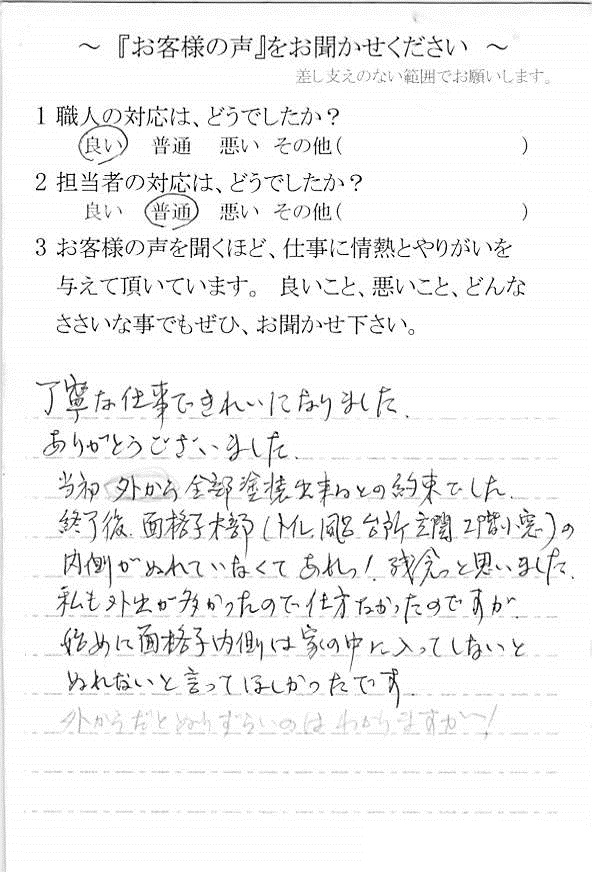 ～ 『お客様の声』をお聞かせください ～
差し支えのない範囲でお願いします。
1 職人の対応は、どうでしたか？
良い 普通 悪い その他( )
2 担当者の対応は、どうでしたか？
良い 普通 悪い その他( )
3 お客様の声を聞くほど、仕事に情熱とやりがいを
与えて頂いています。 良いこと、悪いこと、どんな
ささいな事でもぜひ、お聞かせ下さい。
丁寧な仕事できれいになりました.
ありがとうございました.
当初 外から全部塗装出来るとの約束でした.
終了後、面格子木部(トイレ、風呂、台所、玄関、2階小窓)の
内側がぬれていなくて あれっ! 残念っと思いました.
私も外出が多かったので仕方なかったのですが、
始めに面格子内側は家の中に入ってしないと
ぬれないと言ってほしかったです.
外からだとぬりずらいのはわかりますが〜!